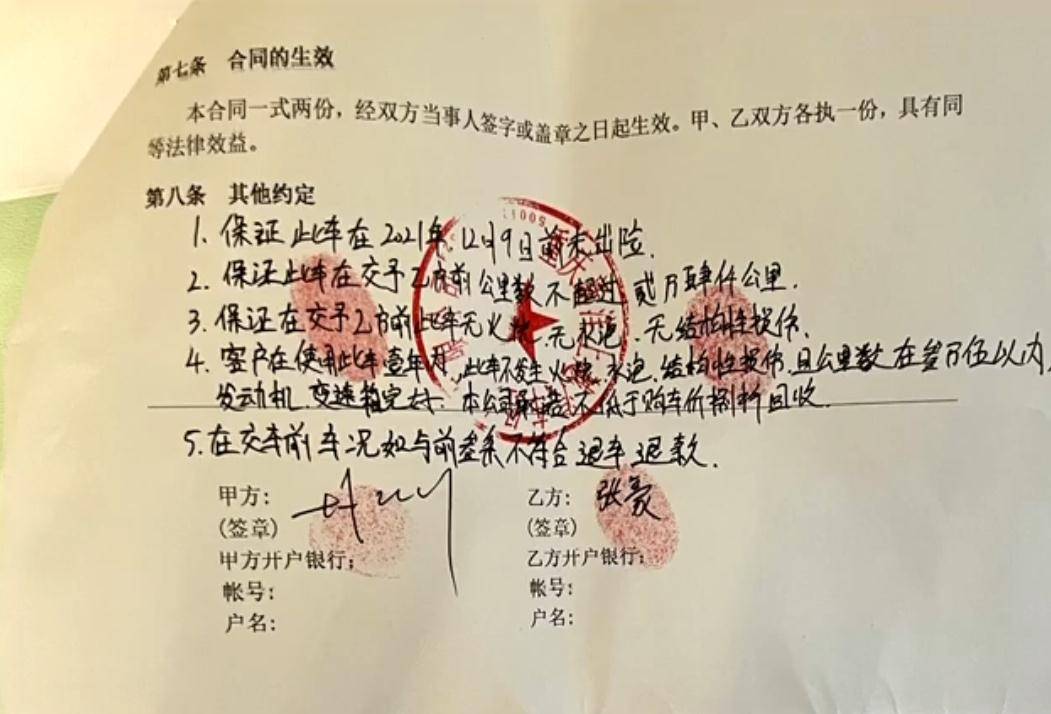 第七条 合同的生效
本合同一式两份，经双方当事人签字或盖章之日起生效。甲、乙双方各执一份，具有同
等法律效益。
第八条 其他约定
1. 保证此车在2021年12月9日前未出险.
2. 保证此车在交予乙方前公里数不超过贰万肆仟公里.
3. 保证在交予乙方前此车无火烧.无水泡.无结构性损伤.
4. 客户在使用此车壹年内,此车不发生火烧.水泡.结构性损伤.且公里数在叁万伍以内,
发动机.变速箱完好.本公司承诺不低于购车价捌折回收.
5. 在交车前车况如与前叁条不符合退车退款.
甲方:
乙方: 张豪
(签章)
(签章)
甲方开户银行:
乙方开户银行:
帐号:
帐号:
户名:
户名: